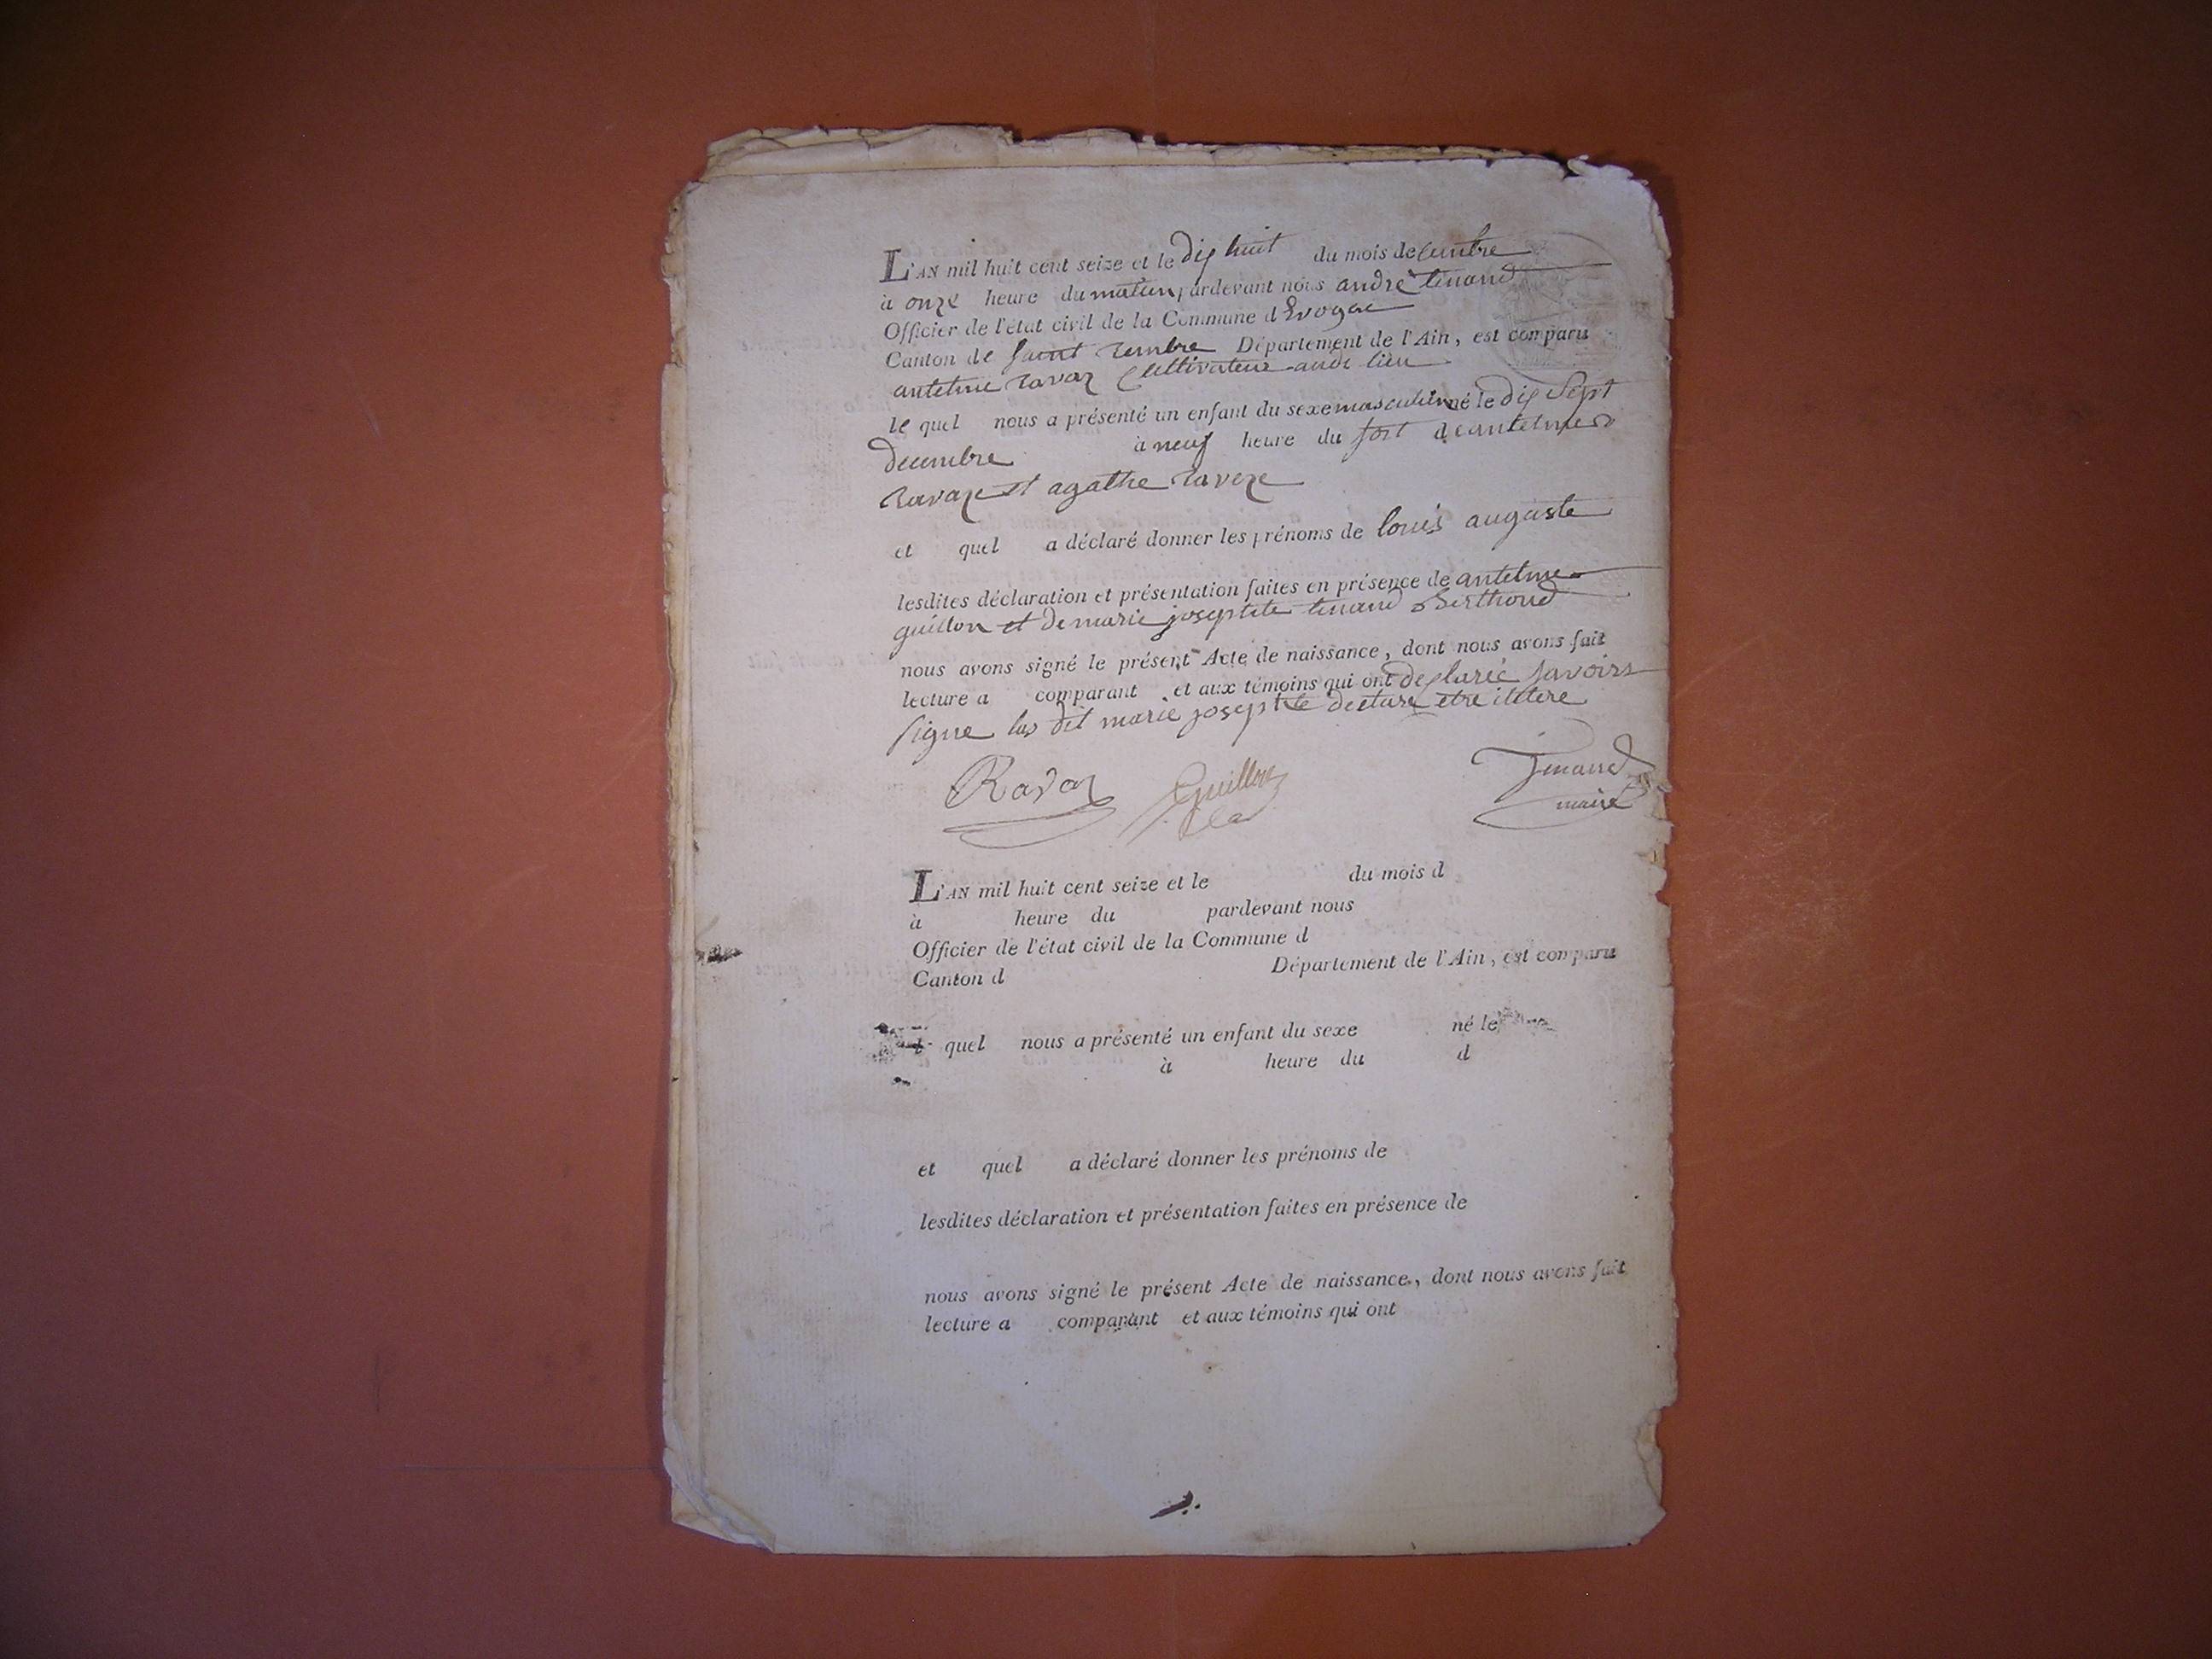 L'AN mil huit cent seize et le dix huit du mois de cembre
à onze heure du matin pardevant nous andré tenand
Officier de l'état civil de la Commune d Evoge
Canton de saint rembre Département de l'Ain, est comparu
antelme ravaz Cultivateur audi lieu
le quel nous a présenté un enfant du sexe masculin né le dix sept
decembre à neuf heure du soit de antelme
Ravaz et agathe raveze
et quel a déclaré donner les prénoms de louis auguste
lesdites déclaration et présentation faites en présence de antelme
guillon et de marie josephte tenand Berthoud
nous avons signé le présent Acte de naissance, dont nous avons fait
lecture a comparant et aux témoins qui ont declaré savoirs
signe las dit marie josephte declare etre iletere
Ravaz Guillon Tenand
maire
L'AN mil huit cent seize et le du mois d
à heure du pardevant nous
Officier de l'état civil de la Commune d
Canton d Département de l'Ain, est comparu
quel nous a présenté un enfant du sexe né le
à heure du d
et quel a déclaré donner les prénoms de
lesdites déclaration et présentation faites en présence de
nous avons signé le présent Acte de naissance, dont nous avons fait
lecture a comparant et aux témoins qui ont